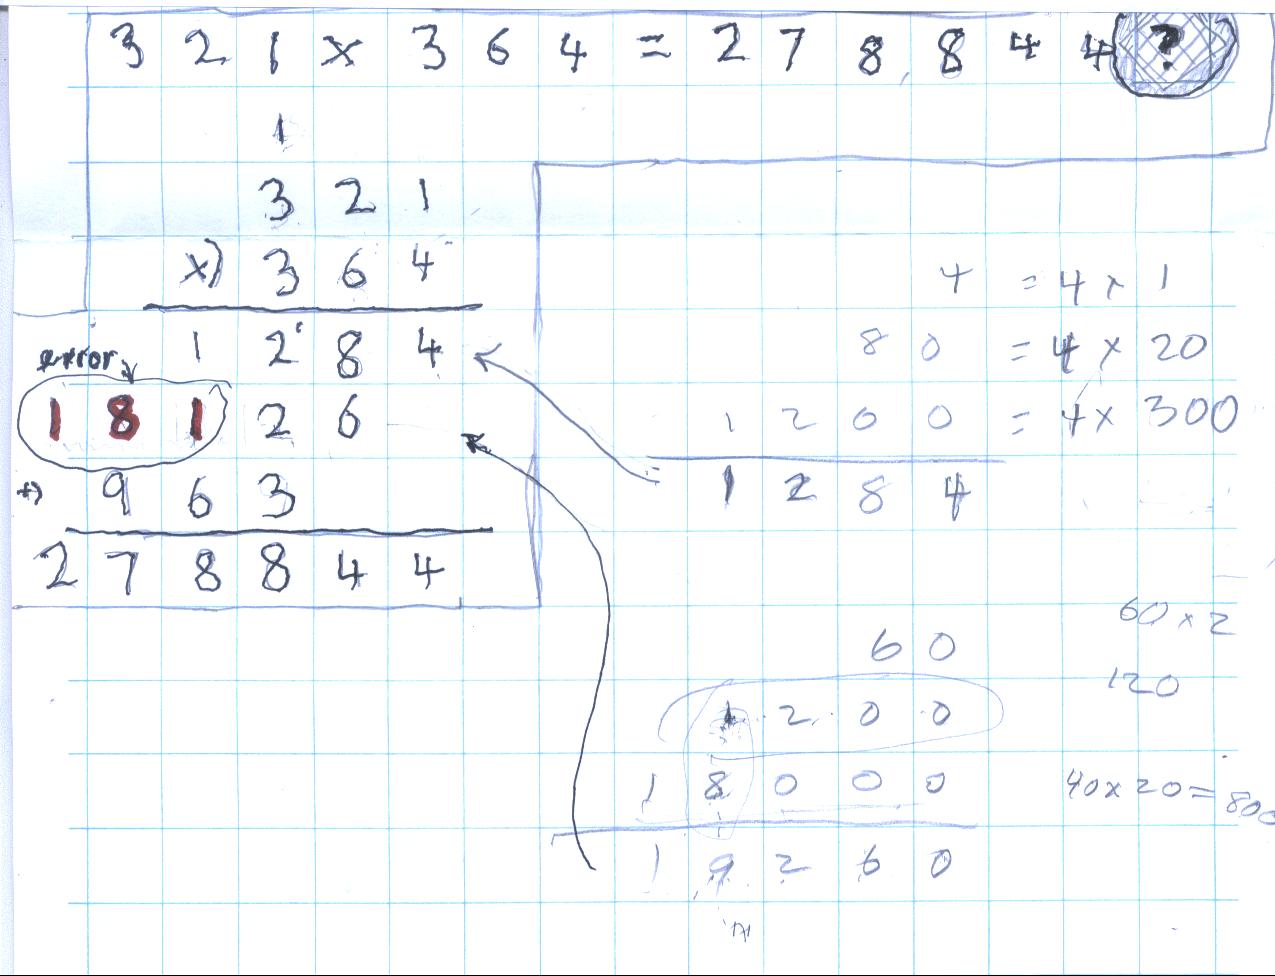 321 x 364 = 278,844 ?
1
321
x) 364
1284
error
18126
+) 963
278844
4 = 4 x 1
80 = 4 x 20
1200 = 4 x 300
= 1284
60 x 2
60
120
1200
18000
40 x 20 = 800
19260